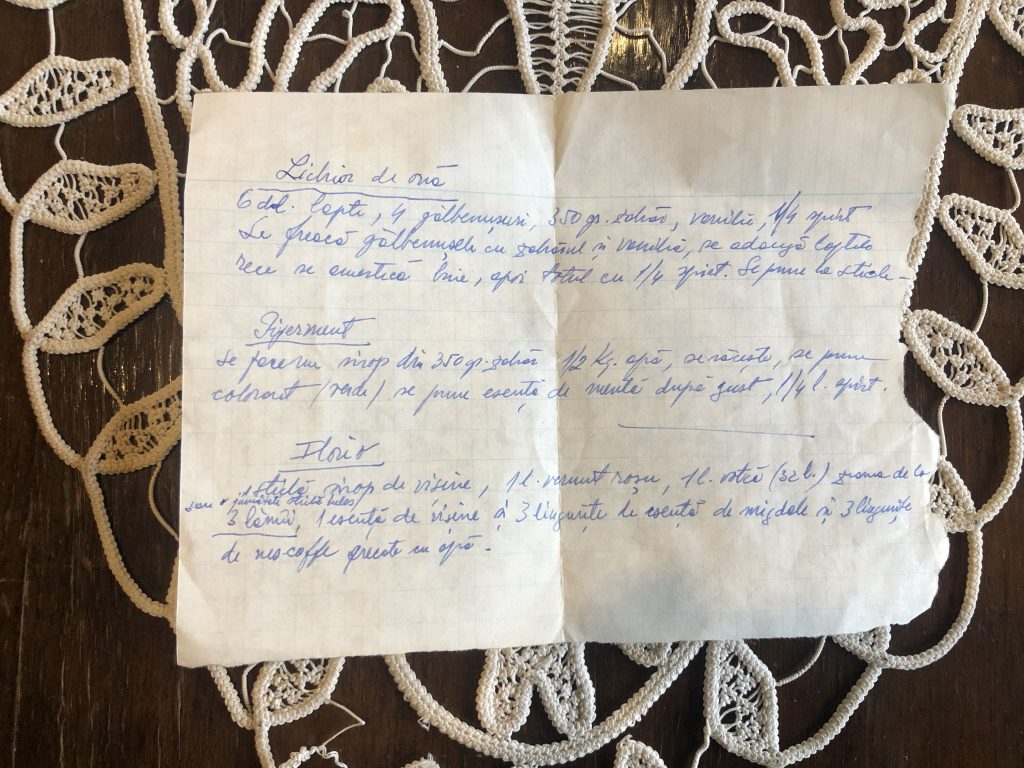 Lichior de ouă
6 dl. lapte, 4 gălbenușuri, 350 gr. zahăr, vanilie, 1/4 spirt
Se freacă gălbenușele cu zahărul și vanilia, se adaugă laptele
rece se amestică bine, apoi totul cu 1/4 spirt. Se pune la sticle -
Piperment
Se face un sirop din 350 gr. zahăr 1/2 Kg. apă, se răcește, se pune
colorant (verde) se pune esență de mentă după gust, 1/4 l. spirt.
Florio
1 sticlă sirop de vișine, 1 l. vermut roșu, 1 l. votcă (32 l.) zeama de la
sau jumătate sticlă
3 lămîi, 1 esență de vișine și 3 lingurițe de esență de migdale și 3 lingurițe
de nescaffe frecate cu apă -